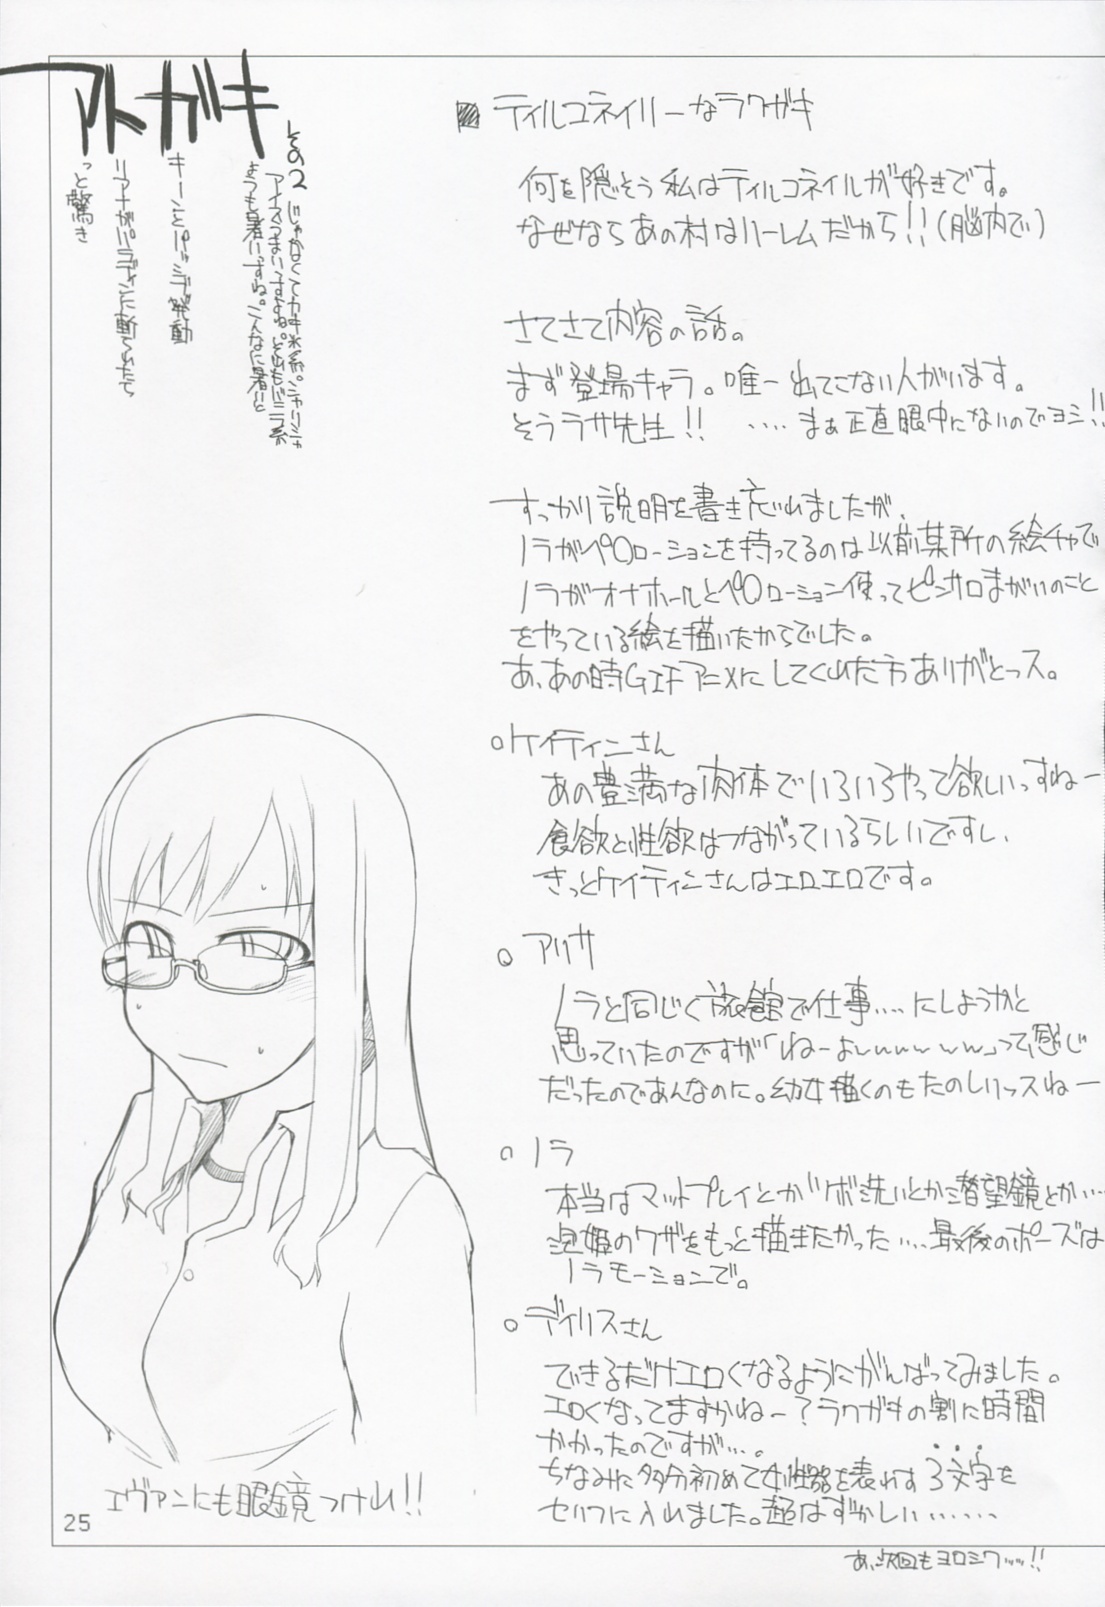 アトガキ
その2じゃなくてカキ氷系。シャリシャ
アイスうまいっすよね。それもバニラ系
まっも暑いっすね。こんなに暑いと
キーンとパッシブ発動
リアナがパラディンに斬られたら
っと驚き
ティルコネイリーなラクガキ
何を隠そう私はティルコネイルが好きです。
なぜならあの村はハーレムだから!!(脳内で)
さてさて内容の話。
まず登場キャラ。唯一出てこない人がいます。
そうラサ先生!! ‥‥まぁ正直眼中にないのでヨシ!!
すっかり説明を書き忘れましたが、
ノラがペ○ローションを持ってるのは以前某所の絵チャで
ノラがオナホールとペ○ローション使ってピンサロまがいのこと
をやっている絵を描いたからでした。
あ、あの時GIFアニメにしてくれた方ありがとっス。
○ケイティンさん
あの豊満な肉体でいろいろやって欲しいっすねー
食欲と性欲はつながっているらしいですし、
きっとケイティンさんはエロエロです。
○アリサ
ノラと同じく旅館で仕事‥‥にしようかと
思っていたのですが「ねーよwwwww」って感じ
だったのであんなのに。幼女描くのもたのしいっスねー
○ノラ
本当はマットプレイとかツボ洗いとか潜望鏡とか‥‥
泡姫のワザをもっと描きたかった‥‥最後のポーズは
ノラモーションで。
○デイリスさん
できるだけエロくなるようにがんばってみました。
エロくなってますかねー?ラクガキの割に時間
かかったのですが‥‥。
ちなみに多分初めて女性器を表わす3文字を
セリフに入れました。超はずかしい‥‥‥
エヴァンにも眼鏡つけれ!!
25
あ、次回もヨロシクッッ!!